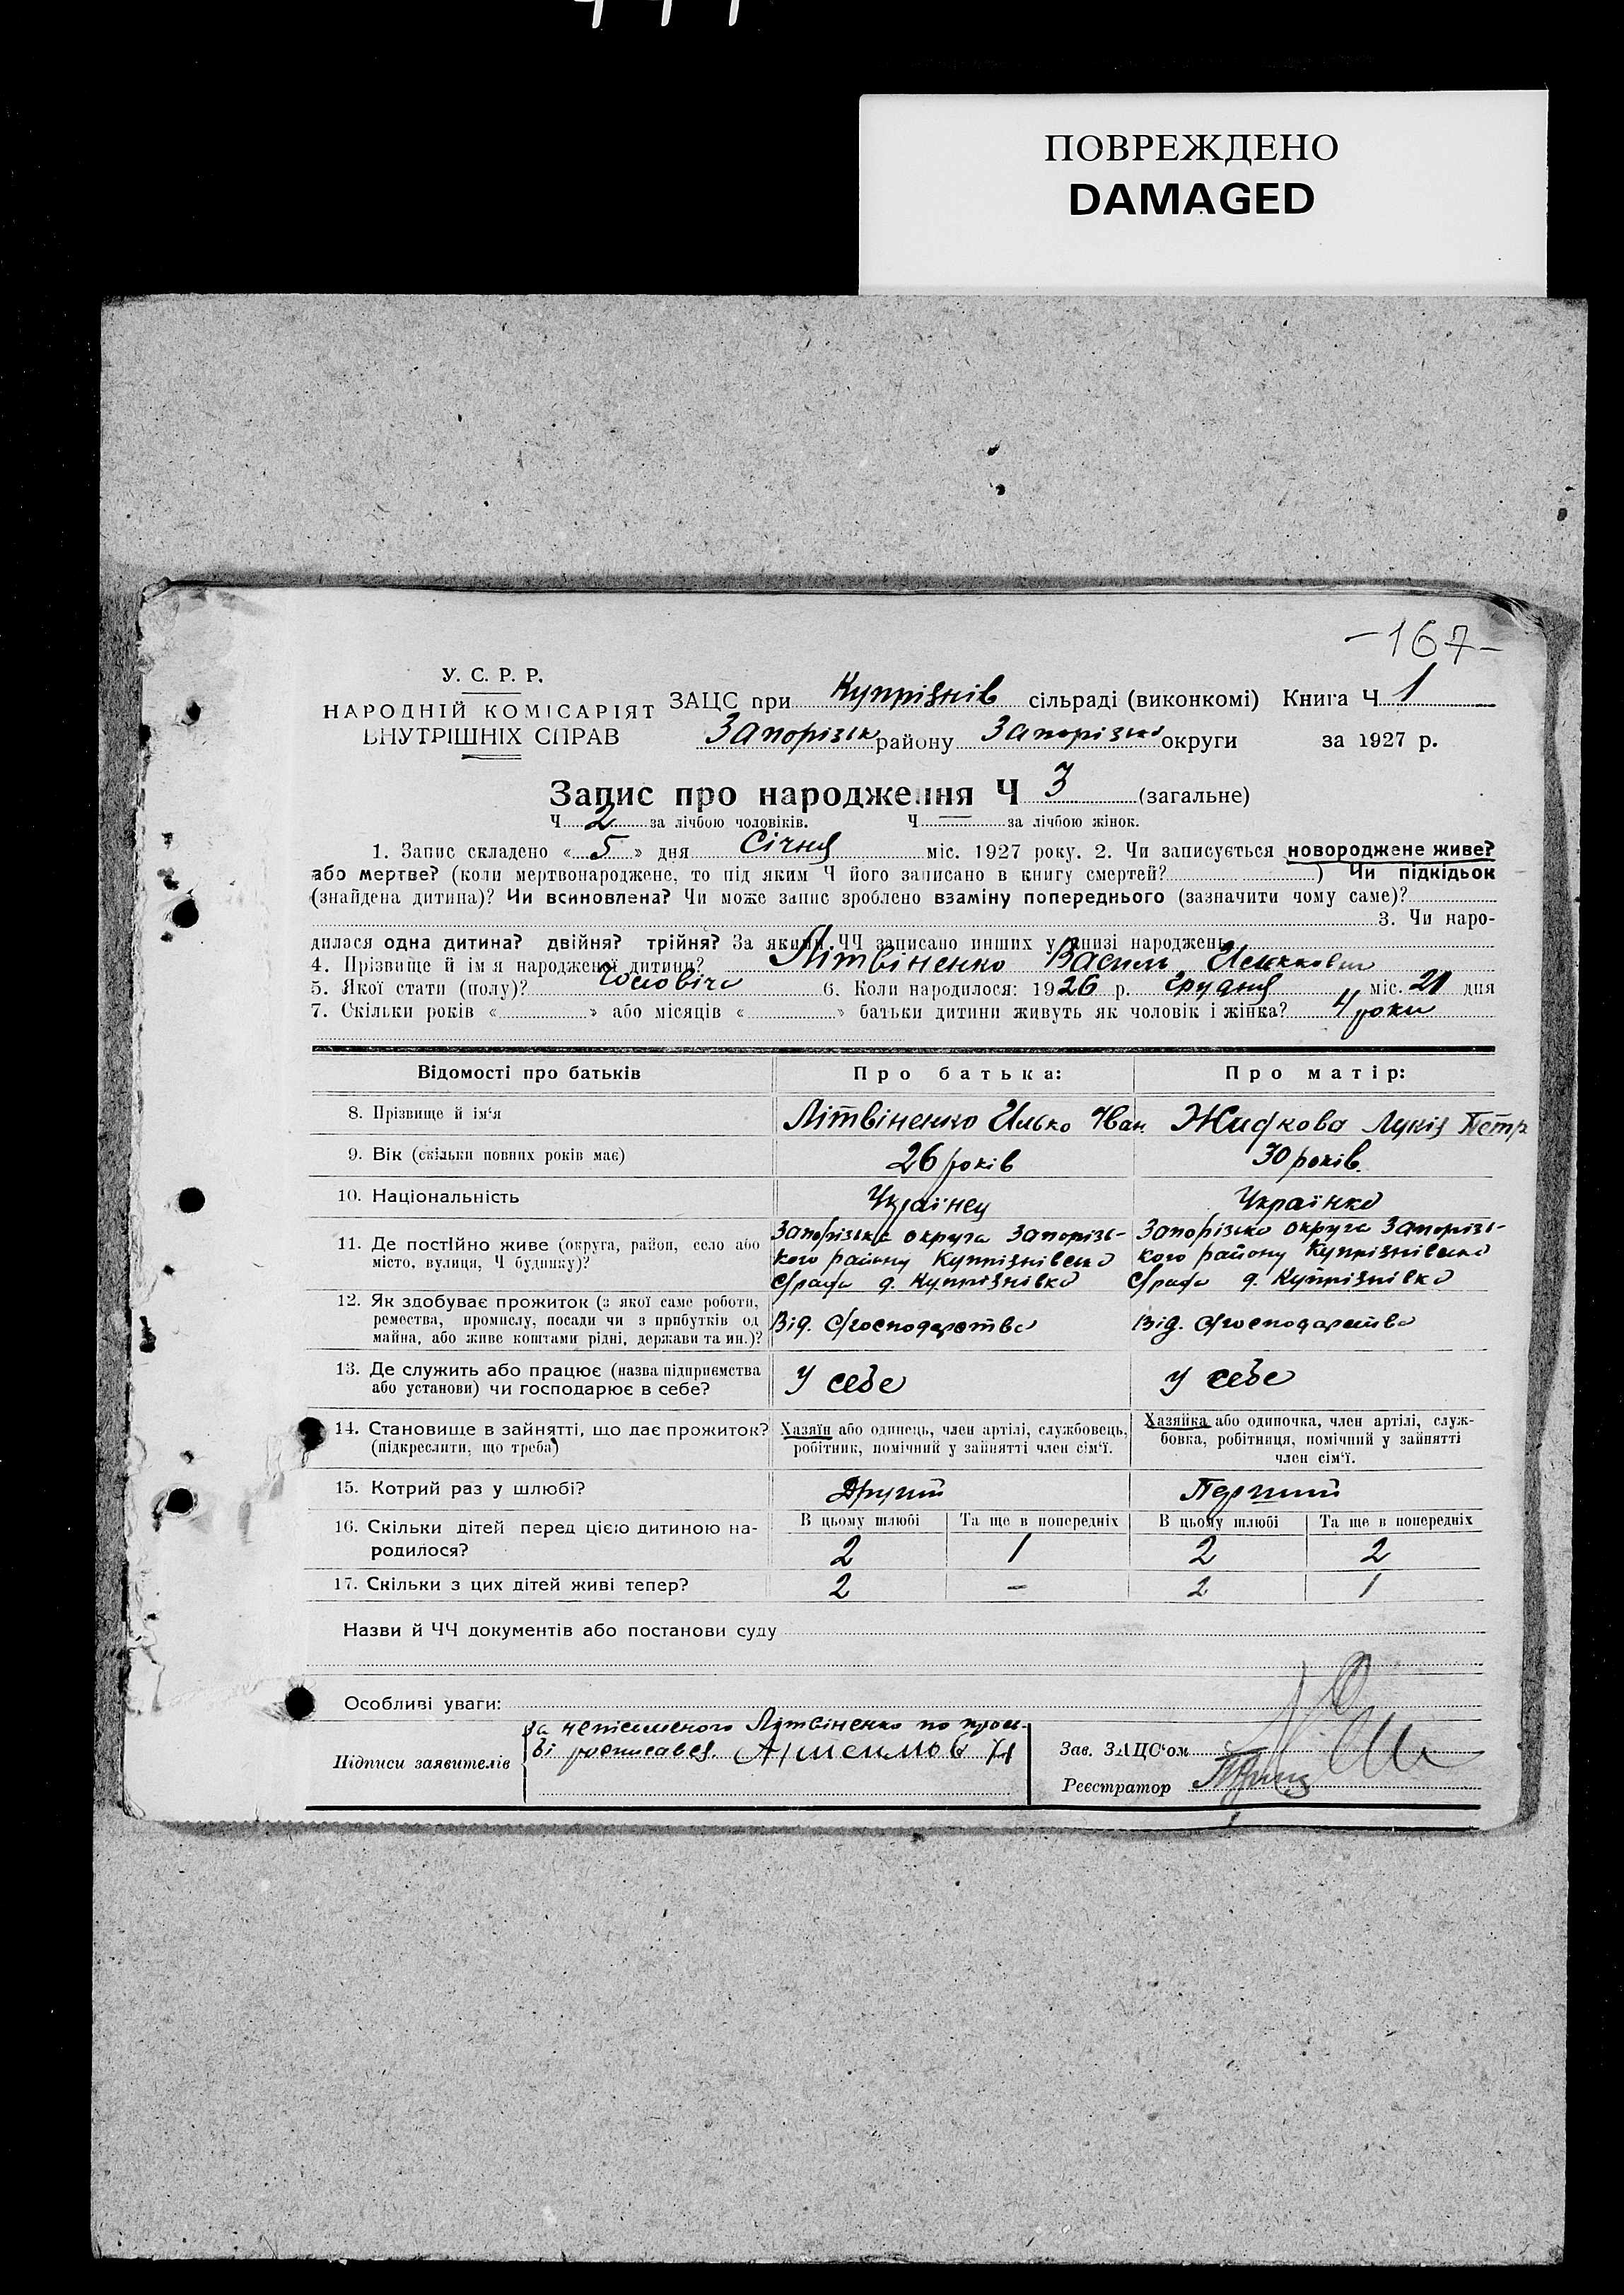 ПОВРЕЖДЕНО
DAMAGED
—167—
У. С. Р. Р.
НАРОДНІЙ КОМІСАРІЯТ
ВНУТРІШНІХ СПРАВ
ЗАЦС при Купріянів сільраді (виконкомі) Книга Ч 1
Запорізьк району Запорізько округи за 1927 р.
Запис про народження Ч 3 (загальне)
Ч 2 за лічбою чоловіків. Ч — за лічбою жінок.
1. Запис складено «5» дня Січня міс. 1927 року. 2. Чи записується новороджене живе?
або мертве? (коли мертвонароджене, то під яким Ч його записано в книгу смертей? ) Чи підкідьок
(знайдена дитина)? Чи всиновлена? Чи може запис зроблено взаміну попереднього (зазначити чому саме)?
3. Чи наро-
дилася одна дитина? двійня? трійня? За якими ЧЧ записано инших у книзі народжень
4. Прізвище й ім я народженої дитини? Літвіненко Василь Ількович
5. Якої стати (полу)? Чоловіча 6. Коли народилося: 1926 р. Грудня міс. 21 дня
7. Скільки років « » або місяців « » батьки дитини живуть як чоловік і жінка? 4 роки
Відомості про батьків Про батька: Про матір:
8. Прізвище й ім'я Літвіненко Илько Иван Жидкова Лукія Петр
9. Вік (скільки повних років має) 26 років 30 років
10. Національність Українец Українка
11. Де постійно живе (округа, район, село або
місто, вулиця, Ч будинку)?
Запорізька округа Запорізь-
кого району Купріянівська
с/рада д. Купріянівка
Запорізька округа Запорізь-
кого району Купріянівська
с/рада д. Купріянівка
12. Як здобуває прожиток (з якої саме роботи,
ремества, промислу, посади чи з прибутків од
майна, або живе коштами рідні, держави та ин.)?
Від. с/господарства Від. с/господарства
13. Де служить або працює (назва підприємства
або установи) чи господарює в себе?
У себе У себе
14. Становище в зайнятті, що дає прожиток?
(підкреслити, що треба)
Хазяїн або одинець, член артілі, службовець,
робітник, помічний у зайнятті член сім'ї.
Хазяйка або одиночка, член артілі, служ-
бовка, робітниця, помічний у зайнятті
член сім'ї.
15. Котрий раз у шлюбі? Другий Перший
16. Скільки дітей перед цією дитиною на-
родилося?
В цьому шлюбі Та ще в попередніх В цьому шлюбі Та ще в попередніх
2 1 2 2
17. Скільки з цих дітей живі тепер? 2 — 2 1
Назви й ЧЧ документів або постанови суду
Особливі уваги:
Підписи заявителів
за неписьменого Літвіненко по прось-
бі росписавсь Анисимов Н
Зав. ЗАЦС'ом
Реєстратор